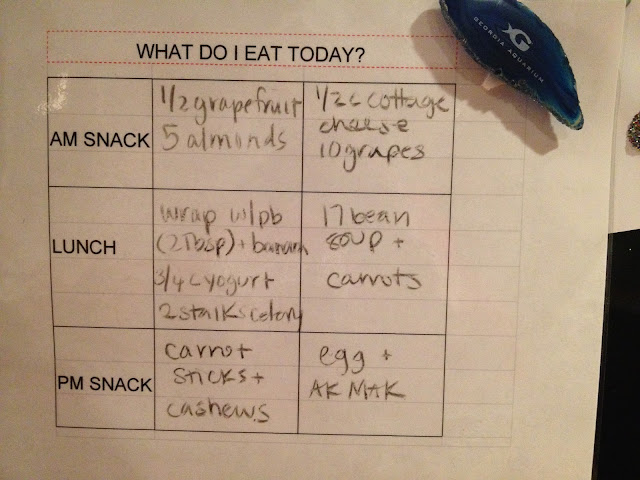 WHAT DO I EAT TODAY?
GEORGIA AQUARIUM
AM SNACK
1/2 grapefruit
5 almonds
1/2 c cottage
cheese
10 grapes
LUNCH
wrap w/pb
(2Tbsp) + banana
3/4 c yogurt
2 stalks celery
17 bean
soup +
carrots
PM SNACK
carrot
sticks +
cashews
egg +
AK MAK